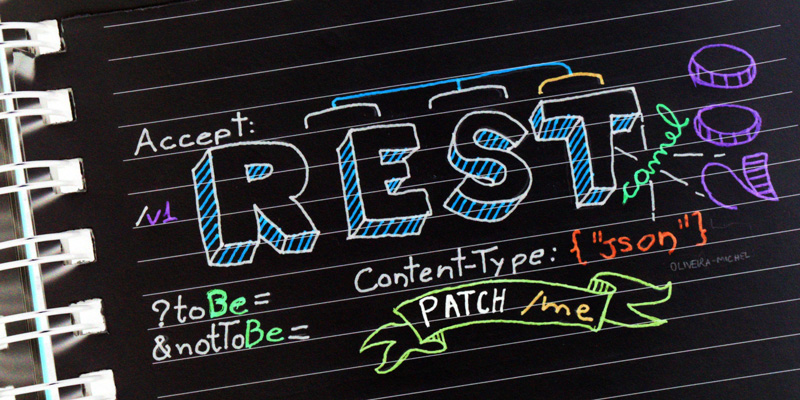 Accept:
REST
camel
/v1
Content-Type: {"json"}
OLIVEIRA-MICHEL
?toBe=
&notToBe=
PATCH /me